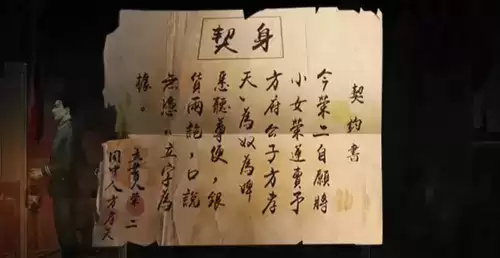 身契
契約書
今榮二自願將
小女榮蓮賣予
方府公子方孝
天,為奴為婢
悉聽尊便,銀
貨兩訖,口說
無憑,立字為
據。
立書人榮二
同中人方孝天